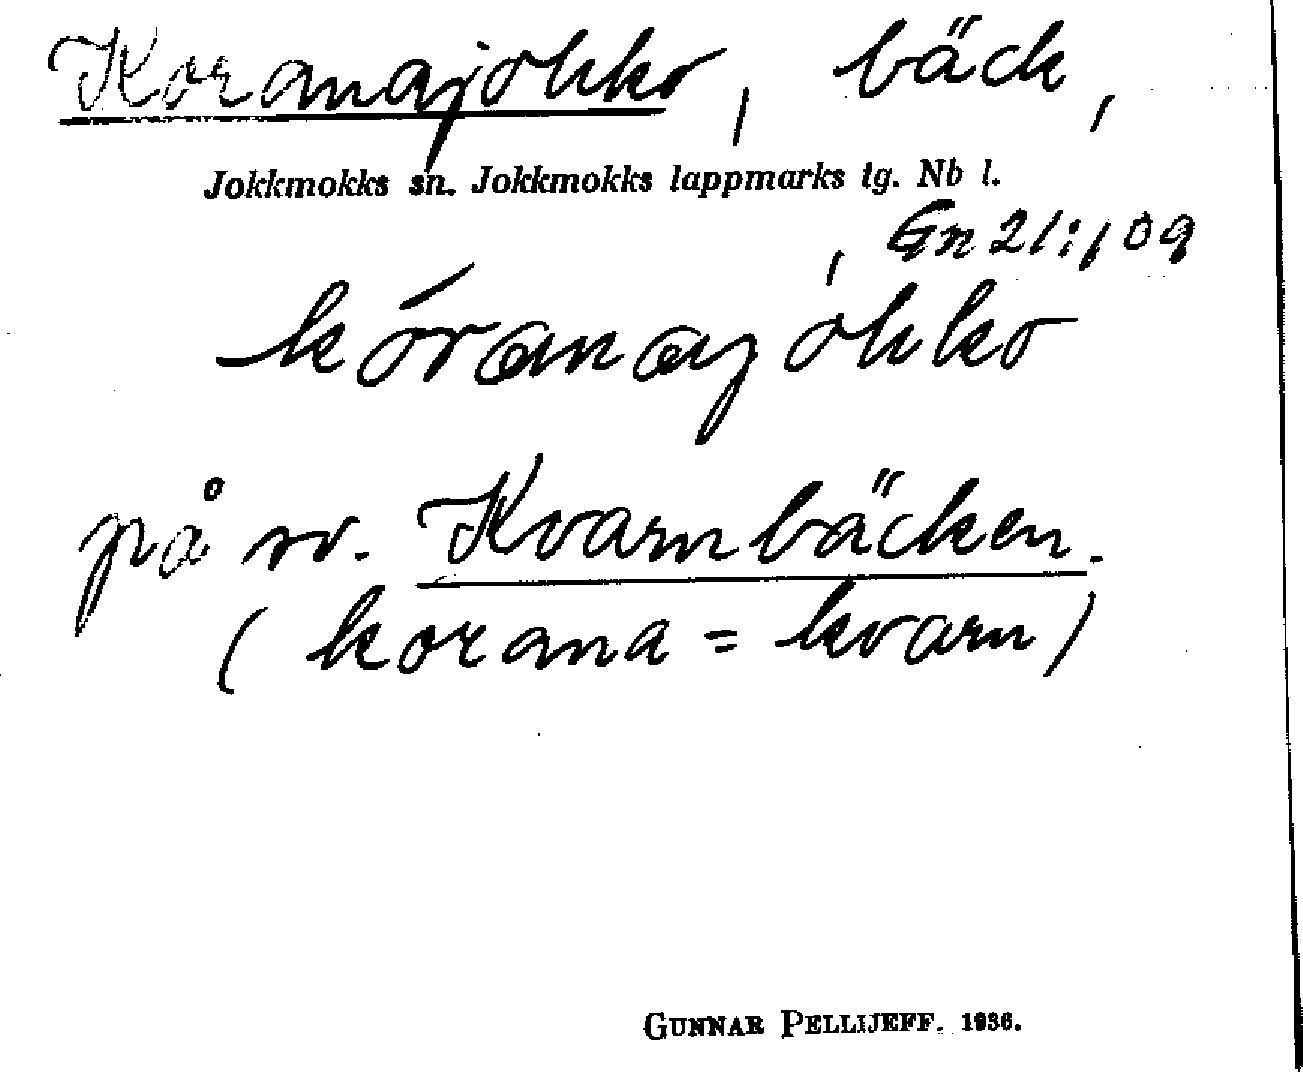 Koranajohko, bäck,
Jokkmokks sn. Jokkmokks lappmarks tg. Nb l.
Gn 21:109
kóranajòhko
på sv. Kvarnbäcken.
(korana = kvarn)
GUNNAR PELLIJEFF. 1936.